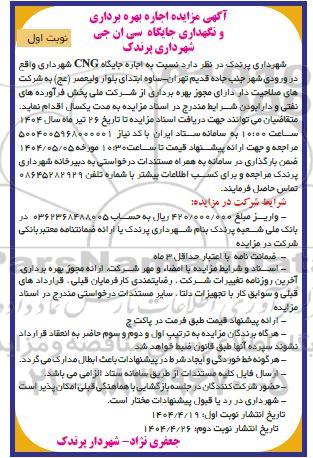 آگهی مزایده اجاره بهره برداری
و نگهداری جایگاه سی ان جی
شهرداری پرندک
نوبت اول
شهرداری پرندک در نظر دارد نسبت به اجاره جایگاه CNG شهرداری واقع
در ورودی شهر جنب جاده قدیم تهران-ساوه ابتدای بلوار ولیعصر (عج) به شرکت
های صلاحیت دار دارای مجوز بهره برداری از شرکت ملی پخش فرآورده های
نفتی و دارا بودن شرایط مندرج در اسناد مزایده به مدت یکسال اقدام نماید.
متقاضیان می توانند جهت دریافت اسناد مزایده تا تاریخ ۲۶ تیر ماه سال ۱۴۰۴
ساعت ۱۰:۰۰ به سامانه ستاد ایران با کد نیاز ۵۰۰۴۰۰۵۹۶۸۰۰۰۰۰۱
مراجعه و جهت ارائه پیشنهاد قیمت تا ساعت۱۰:۳۰ مورخه ۱۴۰۴/۰۵/۰۵
ضمن بارگذاری در سامانه به همراه مستندات درخواستی به دبیرخانه شهرداری
پرندک مراجعه و برای کسب اطلاعات بیشتر با شماره تلفن ۰۸۶۴۵۲۸۲۹۲۹
تماس حاصل فرمایند.
شرایط شرکت در مزایده:
– واریز مبلغ ۴۲۰/۰۰۰/۰۰۰ ریال به حساب ۰۳۶۲۳۶۸۴۸۸۰۰۵ در
بانک ملی شعبه پرندک بنام شهرداری پرندک یا ارائه ضمانتنامه معتبر بانکی
شرکت در مزایده
– ضمانت نامه با اعتبار حداقل ۳ ماه
– اسناد و شرایط مزایده با امضاء و مهر شرکت، ارائه مجوز بهره برداری،
آخرین روزنامه تغییرات شرکت، رضایتمندی کارفرمایان قبلی، قرارداد های
قبلی و سوابق کار با تجهیزات دلتا، سایر مستندات درخواستی مندرج در اسناد
مزایده
– ارائه پیشنهاد قیمت طبق فرمت در پاکت ج
– هرگاه برندگان مزایده به ترتیب اول و دوم و سوم حاضر به انعقاد قرارداد
نشوند سپرده آنها طبق قانون ضبط خواهد شد.
– هر گونه خط خوردگی و ایجاد شرط در پیشنهادات باعث ابطال مدارک می گردد.
– ارسال فایل کلیه مستندات از طریق سامانه ستاد الزامی می باشد.
– حضور شرکت کنندگان در جلسه بازگشایی با هماهنگی قبلی امکان پذیر است
– شهرداری در رد یا قبول پیشنهادات مختار است.
تاریخ انتشار نوبت اول: ۱۴۰۴/۴/۱۹
تاریخ انتشار نوبت دوم: ۱۴۰۴/۴/۲۶
جعفری نژاد- شهردار پرندک